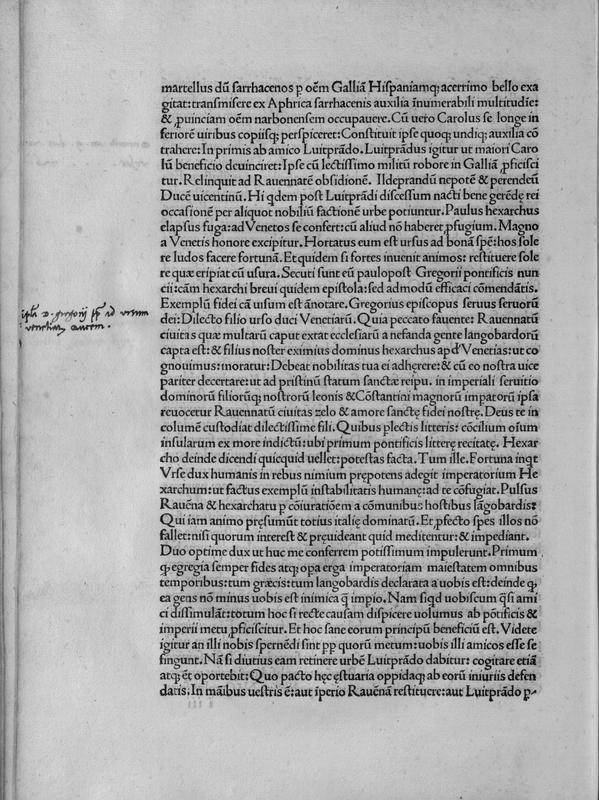 martellus dū sarrhacenos p oēm Galliā Hispaniamq; acerrimo bello exa
gitat: transmisere ex Aphrica sarrhacenis auxilia īnumerabili multitudīe:
& ꝓuinciam oēm narbonensem occupauere. Cū uero Carolus se longe in
feriorē uiribus copiisq; perspiceret: Constituit ipse quoq; undiq; auxilia cō
trahere: In primis ab amico Luitprādo. Luitprādus igitur ut maiori Caro
lū beneficio deuinciret: Ipse cū lectissimo militū robore in Galliā ꝓficisci
tur. Relinquit ad Rauennatē obsidionē. Ildeprandū nepotē & perendeū
Ducē uicentinū. Hi qdem post Luitprādi discessum nacti bene gerēdę rei
occasionē per aliquot nobiliū factionē urbe potiuntur. Paulus hexarchus
elapsus fuga: ad Venetos se confert: cū aliud nō haberet ꝓfugium. Magno
a Venetis honore excipitur. Hortatus eum est ursus ad bonā spē: hos sole
re ludos facere fortunā. Et quidem si fortes inuenit animos: restituere sole
re quæ eripiat cū usura. Secuti sunt eū paulopost Gregorii pontificis nun
cii: cām hexarchi breui quidem epistola: sed admodū efficaci cōmendātis.
Exemplū fidei cā uisum est ānotare. Gregorius episcopus seruus seruorū
ipsi⁹ d. gregorij pp ad vrsum
venetiar. ducem.
dei: Dilecto filio urso duci Venetiarū. Quia peccato fauente: Rauennatū
ciuitas quæ multarū caput extat ecclesiarū a nefanda gente langobardorū
capta est: & filius noster eximius dominus hexarchus apd' Venetias: ut co
gnouimus: moratur: Debeat nobilitas tua ei adhęrere: & cū eo nostra uice
pariter decertare: ut ad pristinū statum sanctæ reipu. in imperiali seruitio
dominorū filiorūq; nostrorū leonis & Cōstantini magnorū impatorū ipsa
reuocetur Rauennatū ciuitas zelo & amore sanctę fidei nostrę. Deus te in
columē custodiat dilectissime fili. Quibus plectis litteris: cōcilium oīsum
insularum ex more indictū: ubi primum pontificis litterę recitatę. Hexar
cho deinde dicendi quicquid uellet: potestas facta. Tum ille. Fortuna inqt
Vrse dux humanis in rebus nimium prępotens adegit imperatorium He
xarchum: ut factus exemplū instabilitatis humanę: ad te cōfugiat. Pulsus
Rauēna & hexarchatu p cōiuratiōem a cōmunibus hostibus lāgobardis:
Qui iam animo pręsumūt totius italię dominatū. Et ꝓfecto spes illos nō
fallet: nisi quorum interest & pręuideant quid meditentur: & impediant.
Duo optime dux ut huc me conferrem potissimum impulerunt. Primum
q̨ egregia semper fides atq; opa erga imperatoriam maiestatem omnibus
temporibus: tum græcis: tum langobardis declarata a uobis est: deinde q̨
ea gens nō minus uobis est inimica q̄ impio. Nam siqd uobiscum q̄si ami
ci dissimulāt: totum hoc si recte causam dispicere uolumus ab pōtificis &
imperii metu ꝓficiscitur. Et hoc sane eorum principū beneficiū est. Videte
igitur an illi nobis spernēdi sint pp quorū metum: uobis illi amicos esse se
fingunt. Nā si diutius eam retinere urbē Luitprādo dabitur: cogitare etiā
atq; ēt oportebit: Quo pacto hęc ęstuaria oppidaq; ab eorū iniuriis defen
datis: In māibus uestris ē: aut īperio Rauēnā restituere: aut Luitprādo p-